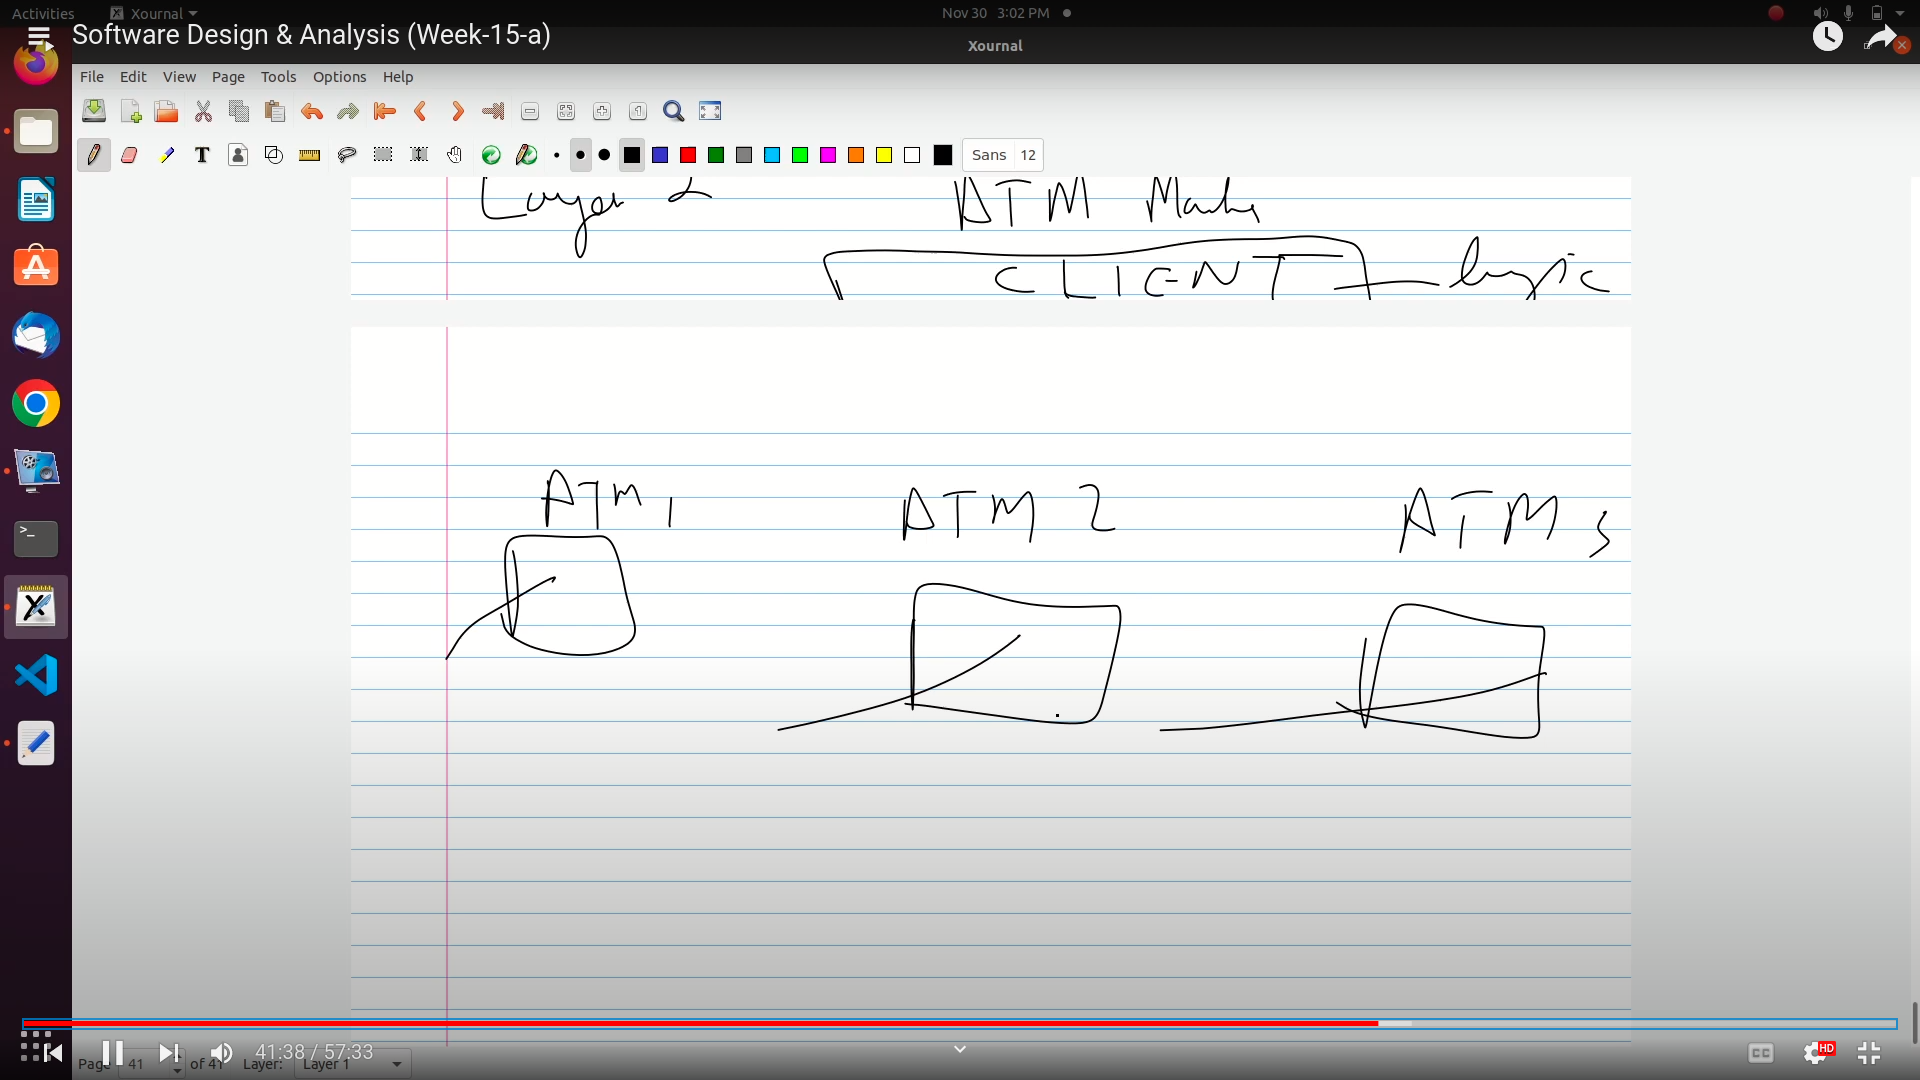 Activities Xournal Nov 30 3:02 PM
Software Design & Analysis (Week-15-a)
Xournal
File Edit View Page Tools Options Help
T Sans 12
Layer 2 ATM
CLIENT logic
ATM 1 ATM 2 ATM 3
41:38 / 57:33
CC HD
Page 41 of 41 Layer: Layer 1